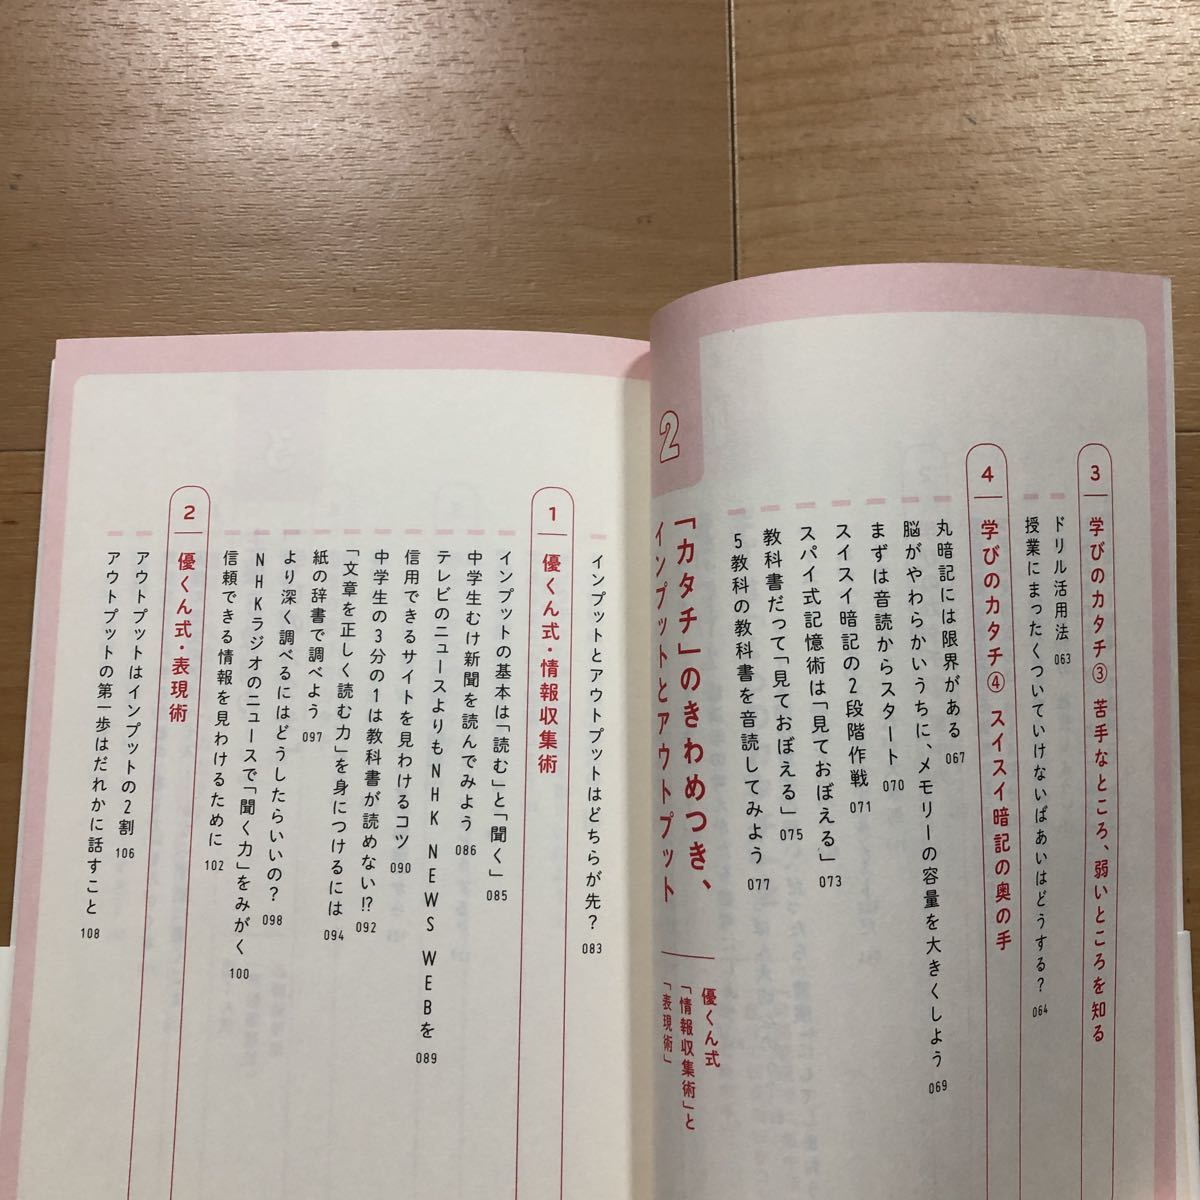 3 学びのカタチ③ 苦手なところ、弱いところを知る
ドリル活用法 063
授業にまったくついていけないばあいはどうする? 064
4 学びのカタチ④ スイスイ暗記の奥の手
丸暗記には限界がある 067
脳がやわらかいうちに、メモリーの容量を大きくしよう 069
まずは音読からスタート 070
スイスイ暗記の2段階作戦 071
スパイ式記憶術は「見ておぼえる」 073
教科書だって「見ておぼえる」 075
5教科の教科書を音読してみよう 077
2
「カタチ」のきわめつき、
インプットとアウトプット
優くん式
「情報収集術」と
「表現術」
インプットとアウトプットはどちらが先? 083
1 優くん式・情報収集術
インプットの基本は「読む」と「聞く」 085
中学生むけ新聞を読んでみよう 086
テレビのニュースよりもNHK NEWS WEBを 089
信用できるサイトを見わけるコツ 090
中学生の3分の1は教科書が読めない!? 092
「文章を正しく読む力」を身につけるには 094
紙の辞書で調べよう 097
より深く調べるにはどうしたらいいの? 098
NHKラジオのニュースで「聞く力」をみがく 100
信頼できる情報を見わけるために 102
2 優くん式・表現術
アウトプットはインプットの2割 106
アウトプットの第一歩はだれかに話すこと 108